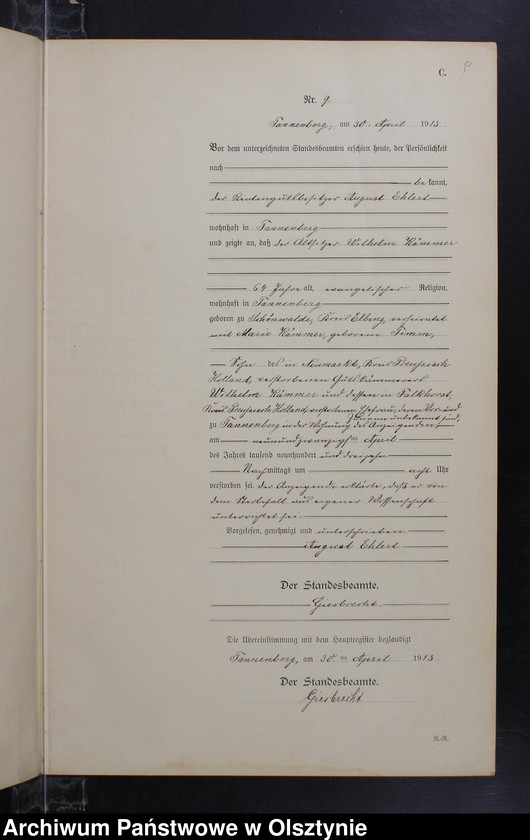 C.
Nr. 9.
Tannenberg, am 30. April 1913.
Vor dem unterzeichneten Standesbeamten erschien heute, der Persönlichkeit
nach
bekannt,
der Rentengutsbesitzer August Ehlert
wohnhaft in Tannenberg
und zeigte an, daß der Altsitzer Wilhelm Kämmer
64 Jahre alt, evangelischer Religion,
wohnhaft in Tannenberg
geboren zu Schönwalde, Kreis Elbing, verheiratet
mit Marie Kämmer, geborene Timm,
Sohn des in Neumarkt, Kreis Preußisch
Holland, verstorbenen Gutskämmerers
Wilhelm Kämmer und dessen in Falkhorst,
Kreis Preußisch Holland, verstorbenen Ehefrau, deren Vor- und
Zuname unbekannt sind,
zu Tannenberg in der Wohnung des Anzeigenden,
am neunundzwanzigsten April
des Jahres tausend neunhundert und dreizehn
Nachmittags um acht Uhr
verstorben sei. Der Anzeigende erklärte, daß er von
dem Sterbefall aus eigener Wissenschaft
unterrichtet sei.
Vorgelesen, genehmigt und unterschrieben
August Ehlert
Der Standesbeamte.
Giesbrecht
Die Übereinstimmung mit dem Hauptregister beglaubigt
Tannenberg, am 30. ten April 1913.
Der Standesbeamte.
Giesbrecht
Archiwum Państwowe w Olsztynie